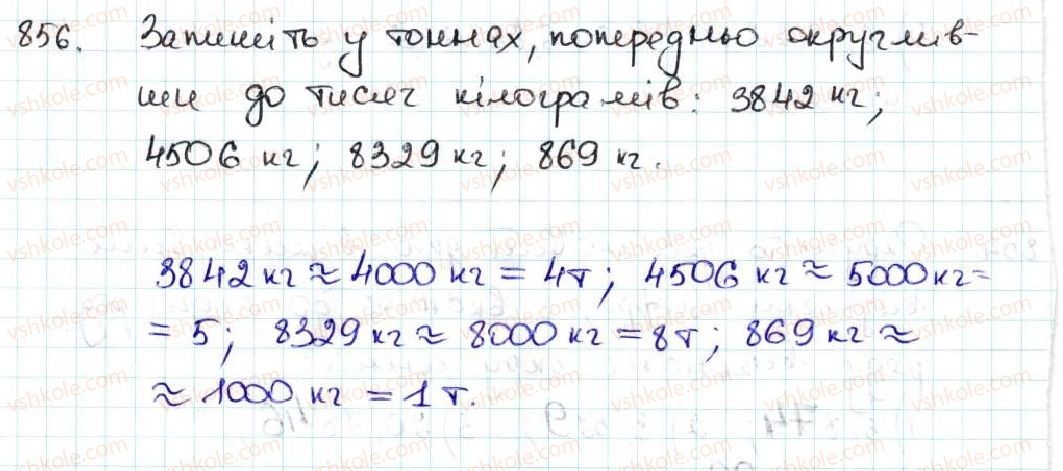 856. Запишіть у тоннах, попередньо округлив-
ши до тисяч кілограмів: 3842 кг;
4506 кг; 8329 кг; 869 кг.
3842 кг ≈ 4000 кг = 4т; 4506 кг ≈ 5000 кг =
= 5; 8329 кг ≈ 8000 кг = 8т; 869 кг ≈
≈ 1000 кг = 1 т.